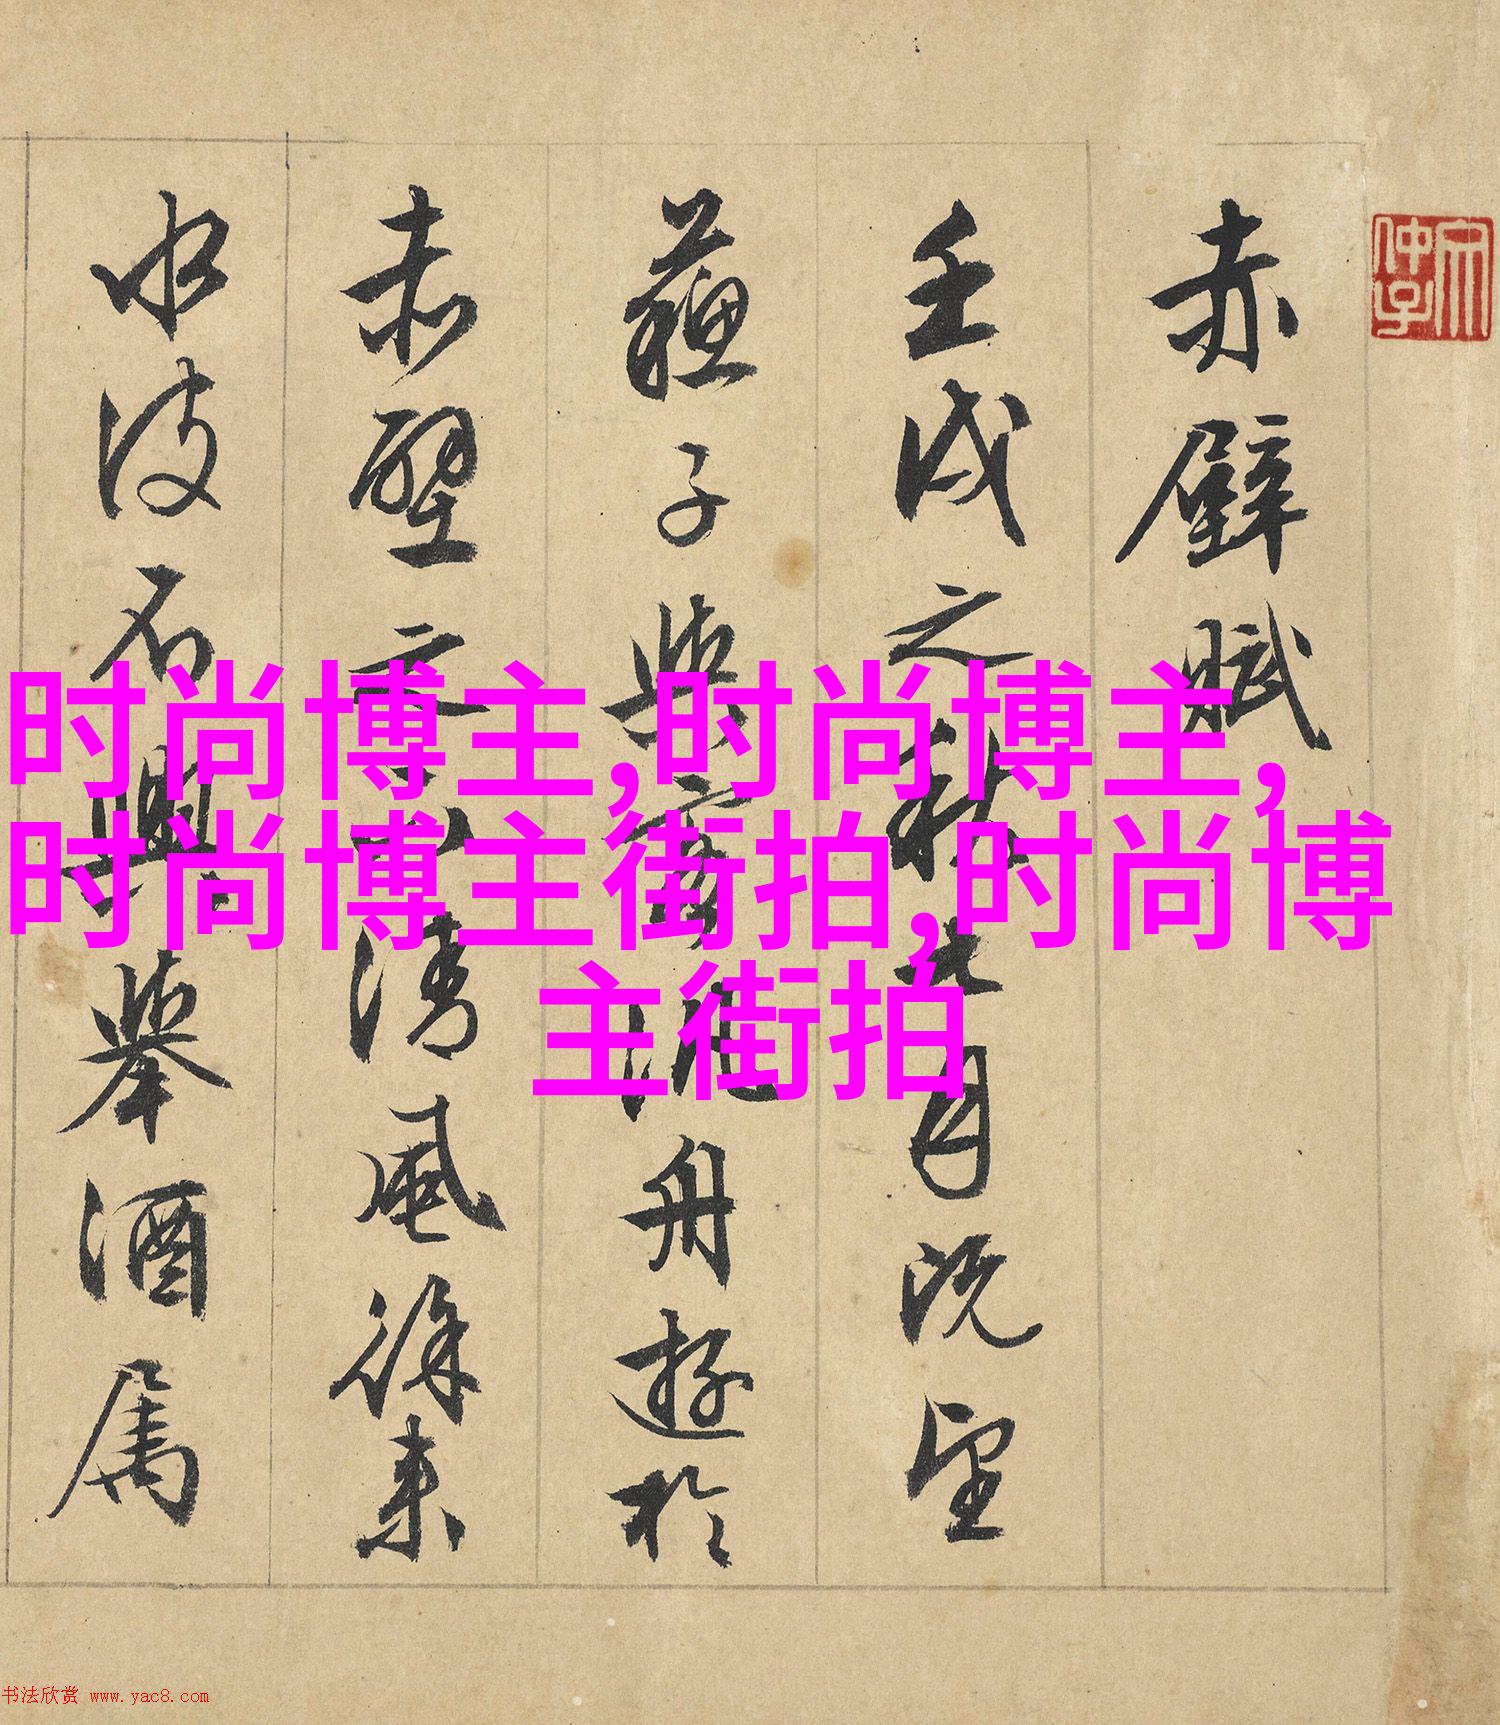 赤壁賦
壬戌之秋七月既望
蘇子與客汎舟遊於
赤壁之下清風徐来
水波不興舉酒属
时尚博主,时尚博主,
时尚博主街拍,时尚博
主街拍
书法欣赏 www.yac8.com